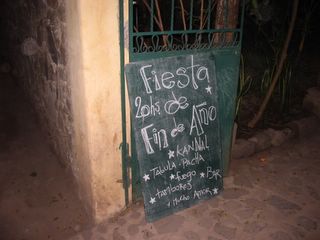 Fiesta
20hs de
Fin de Año
★ KANNAL
★ TABULA-PACHA
★ fuego ★ BAR
★ tambores
y Mucho Amor ★